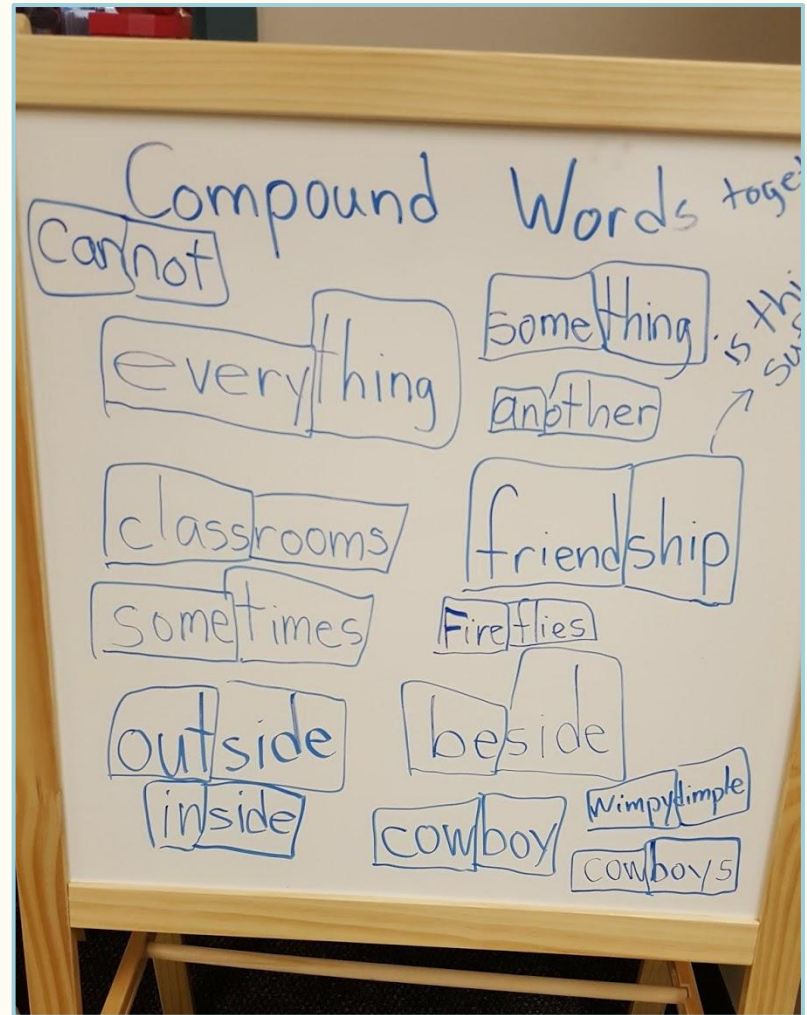 Compound Words
cannot
everything
something
another
is
classrooms
friendship
sometimes
Fireflies
outside
beside
inside
wimpydimple
cowboy
cowboys